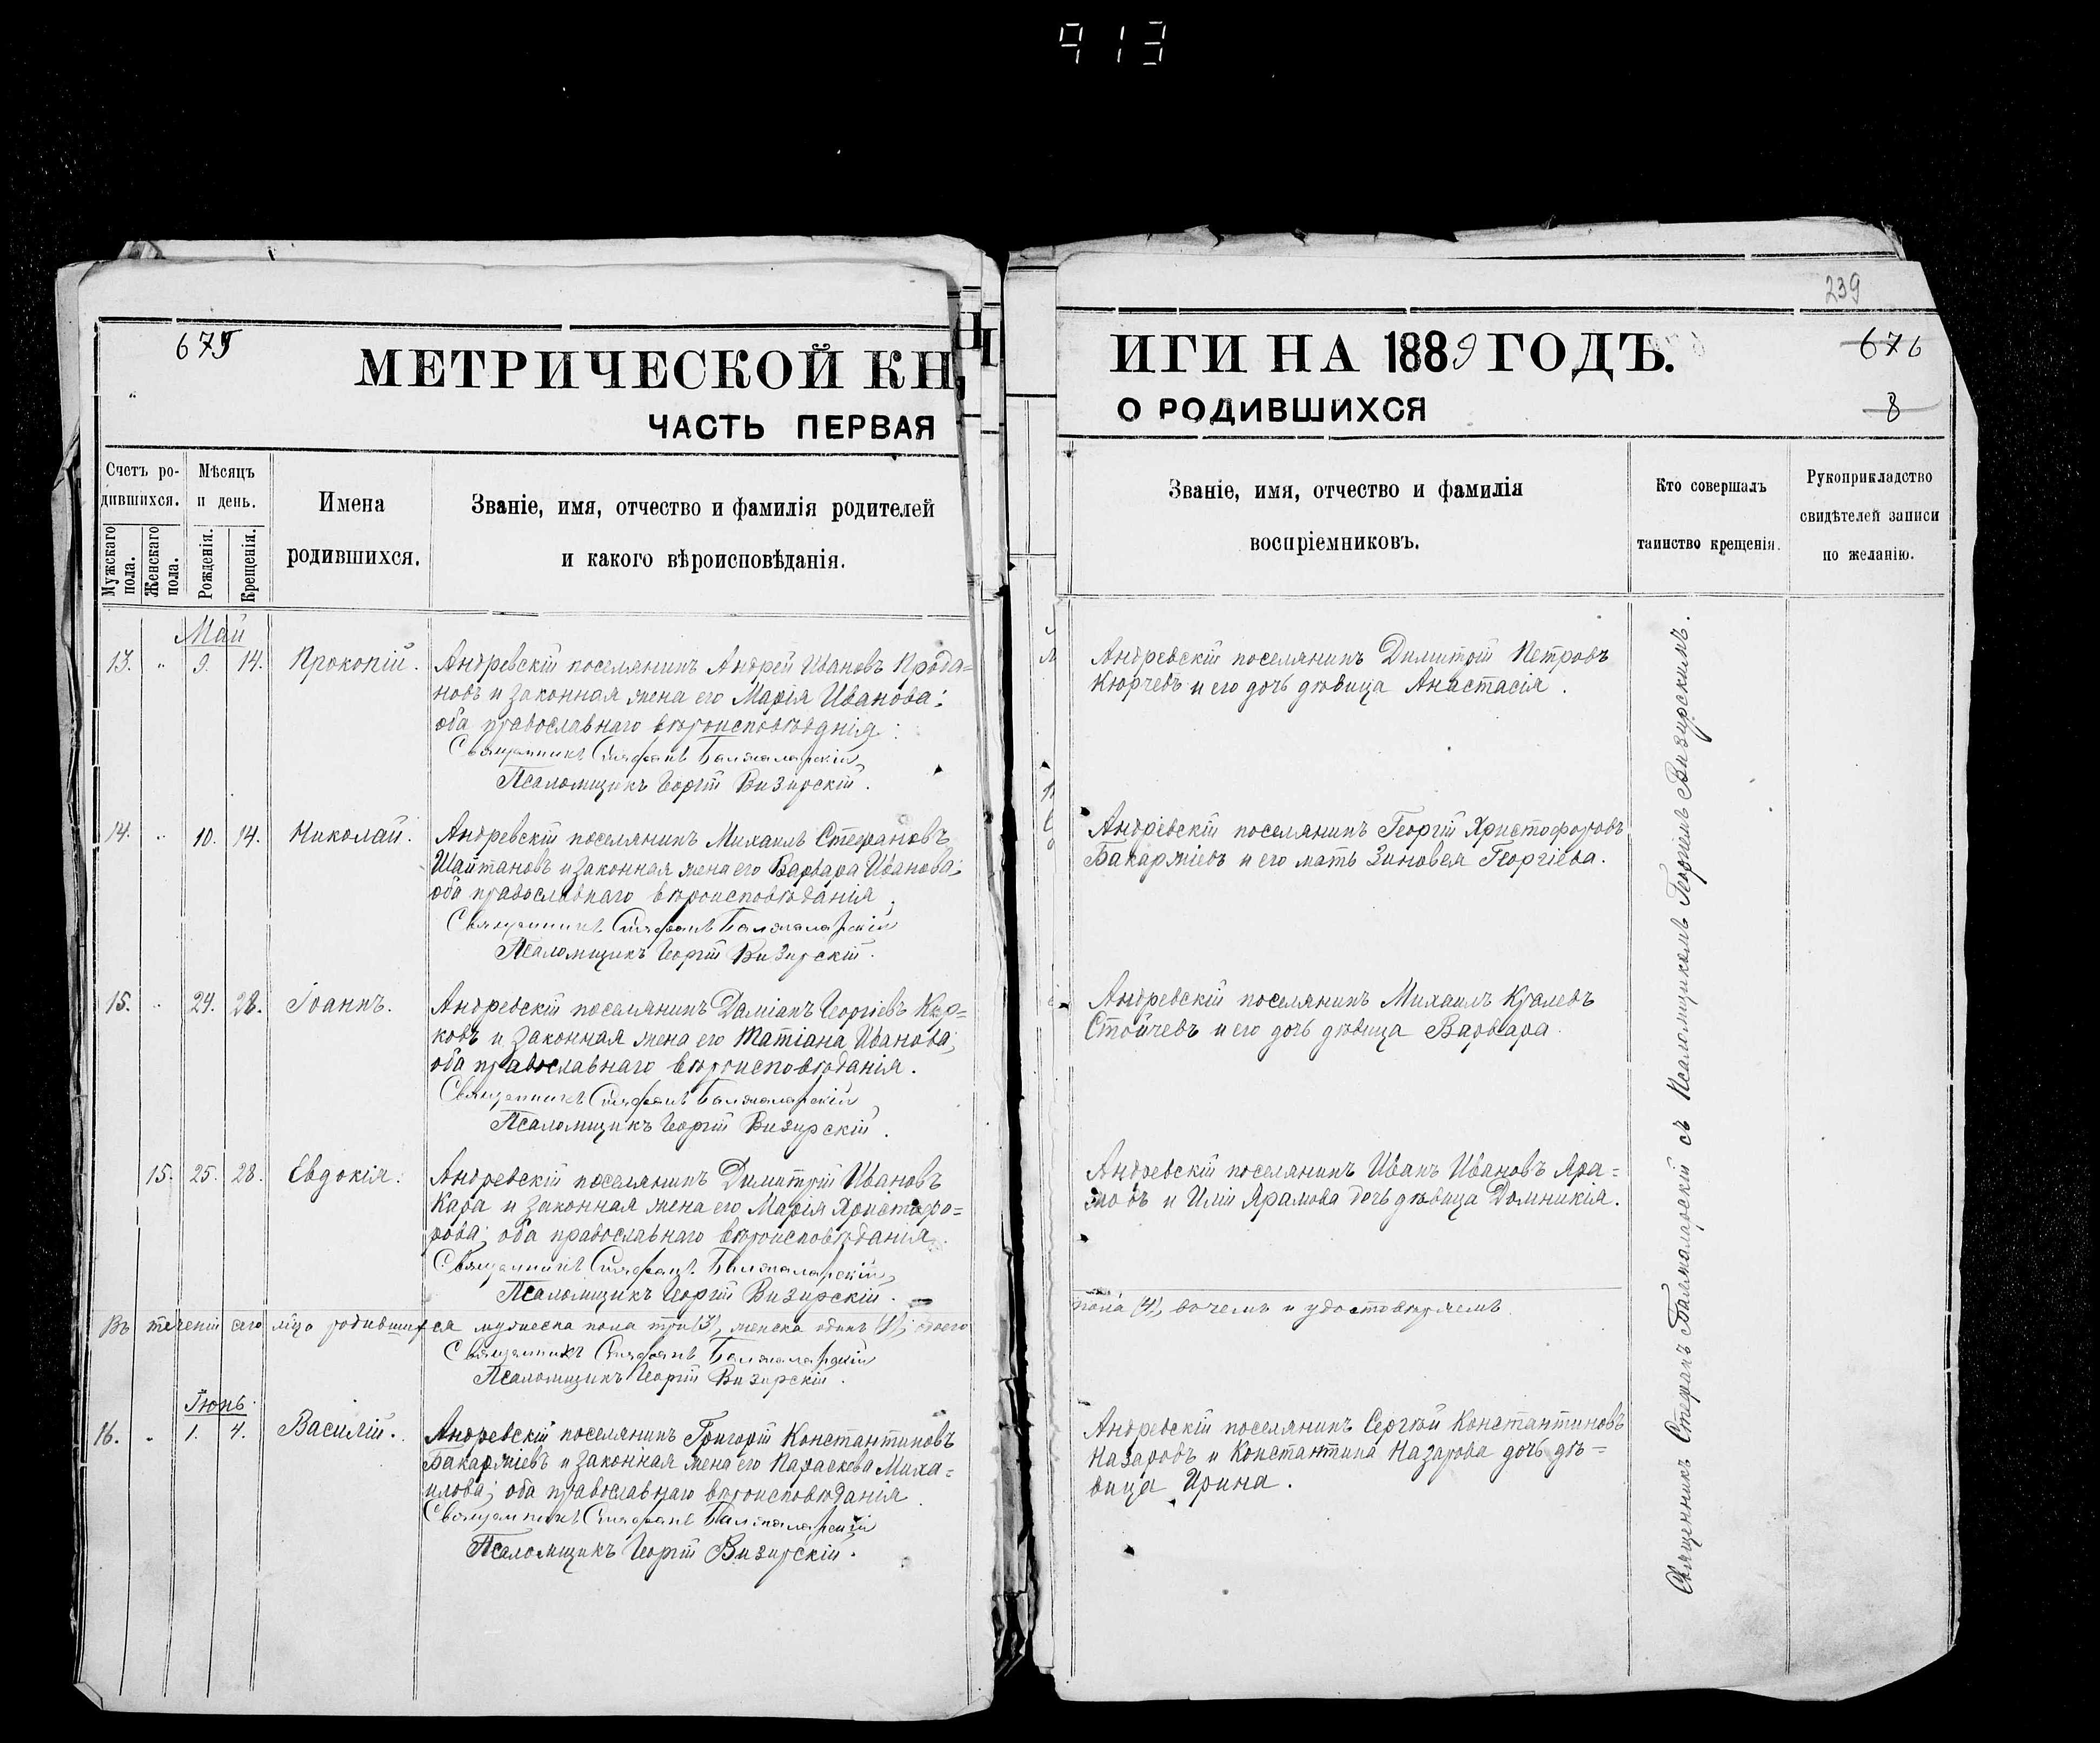 913
675
МЕТРИЧЕСКОЙ КН
ЧАСТЬ ПЕРВАЯ
Счетъ ро-
дившихся.
Мужскаго пола.
Женскаго пола.
Мѣсяцъ
и день.
Рожденія.
Крещенія.
Имена
родившихся.
Званіе, имя, отчество и фамилія родителей
и какого вѣроисповѣданія.
Май
13. " 9. 14. Прокопій. Андревскій поселянинъ Андрей Ивановъ Прода=
новъ и законная жена его Марія Иванова;
оба православнаго вѣроисповѣднія.
Священникъ Стефанъ Балжаларскій
Псаломщикъ Георгій Визирскій.
14. " 10. 14. Николай. Андревскій поселянинъ Михаилъ Стефановъ
Шайтановъ и законная жена его Варвара Иванова;
оба православнаго вѣроисповѣданія
Священникъ Стефанъ Балжаларскій
Псаломщикъ Георгій Визирскій.
15. " 24. 28. Іоаннъ. Андревскій поселянинъ Даміанъ Георгіевъ Кир=
ковъ и законная жена его Татіана Иванова;
оба православнаго вѣроисповѣданія.
Священникъ Стефанъ Балжаларскій
Псаломщикъ Георгій Визирскій.
15. 25. 28. Евдокія. Андревскій поселянинъ Димитрій Ивановъ
Кара и законная жена его Марія Христофо=
рова; оба православнаго вѣроисповѣданія.
Священникъ Стефанъ Балжаларскій
Псаломщикъ Георгій Визирскій.
Въ теченіи сего м-ца родившихся мужеска пола три (3), женска одинъ (1), обоего
Священникъ Стефанъ Балжаларскій
Псаломщикъ Георгій Визирскій.
Іюнь.
16. " 1. 4. Василій. Андревскій поселянинъ Григорій Константиновъ
Бакаржіевъ и законная жена его Параскева Миха=
илова; оба православнаго вѣроисповѣданія.
Священникъ Стефанъ Балжаларскій
Псаломщикъ Георгій Визирскій.
239
ИГИ НА 1889 ГОДЪ.
676
О РОДИВШИХСЯ
8
Званіе, имя, отчество и фамилія
воспріемниковъ.
Кто совершалъ
таинство крещенія.
Рукоприкладство
свидѣтелей записи
по желанію.
Андревскій поселянинъ Димитрій Петровъ
Кюрчевъ и его дочь дѣвица Анастасія.
Андревскій поселянинъ Георгій Христофоровъ
Бакаржіевъ и его мать Зиновея Георгіева.
Андревскій поселянинъ Михаилъ Кралевъ
Стойчевъ и его дочь дѣвица Варвара.
Андревскій поселянинъ Иванъ Ивановъ Яра=
мовъ и Иліи Ярамова дочь дѣвица Домникія.
пола (4), въ чемъ и удостовѣряемъ.
Андревскій поселянинъ Сергѣй Константиновъ
Назаровъ и Константина Назарова дочь дѣ=
вица Ирина.
Священникъ Стефанъ Балжаларскій съ Псаломщикомъ Георгіемъ Визирскимъ.